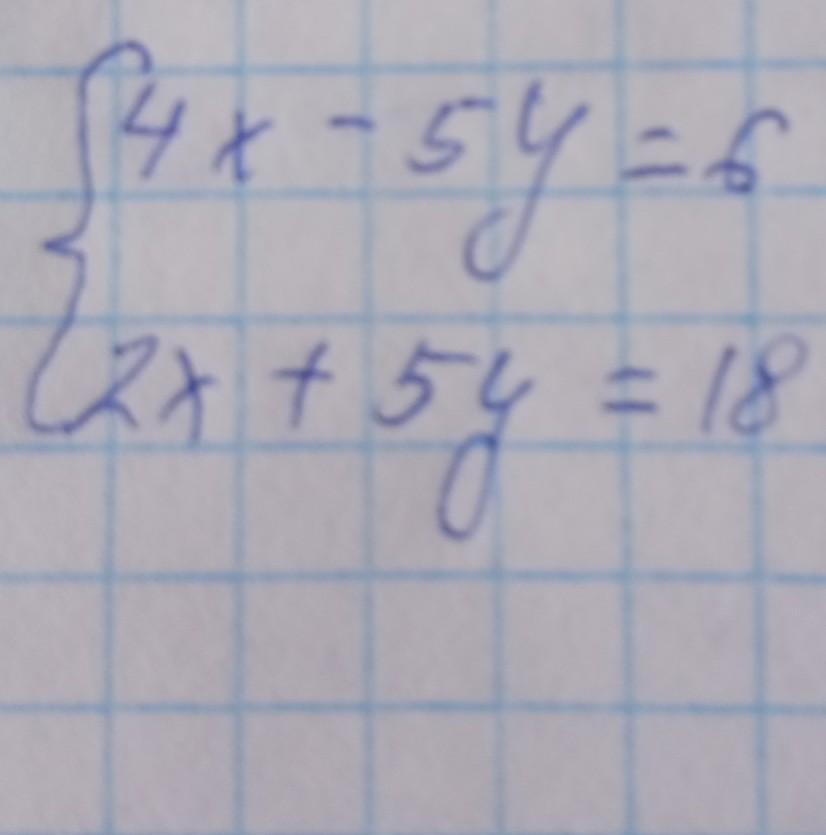 4x - 5y = 6
2x + 5y = 18